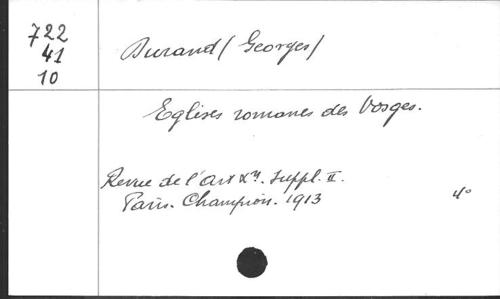 722
41
10
Durand (Georges)
Eglises romanes des Vosges.
Revue de l'Art Xn. Suppl. II.
Paris. Champion. 1913
4°